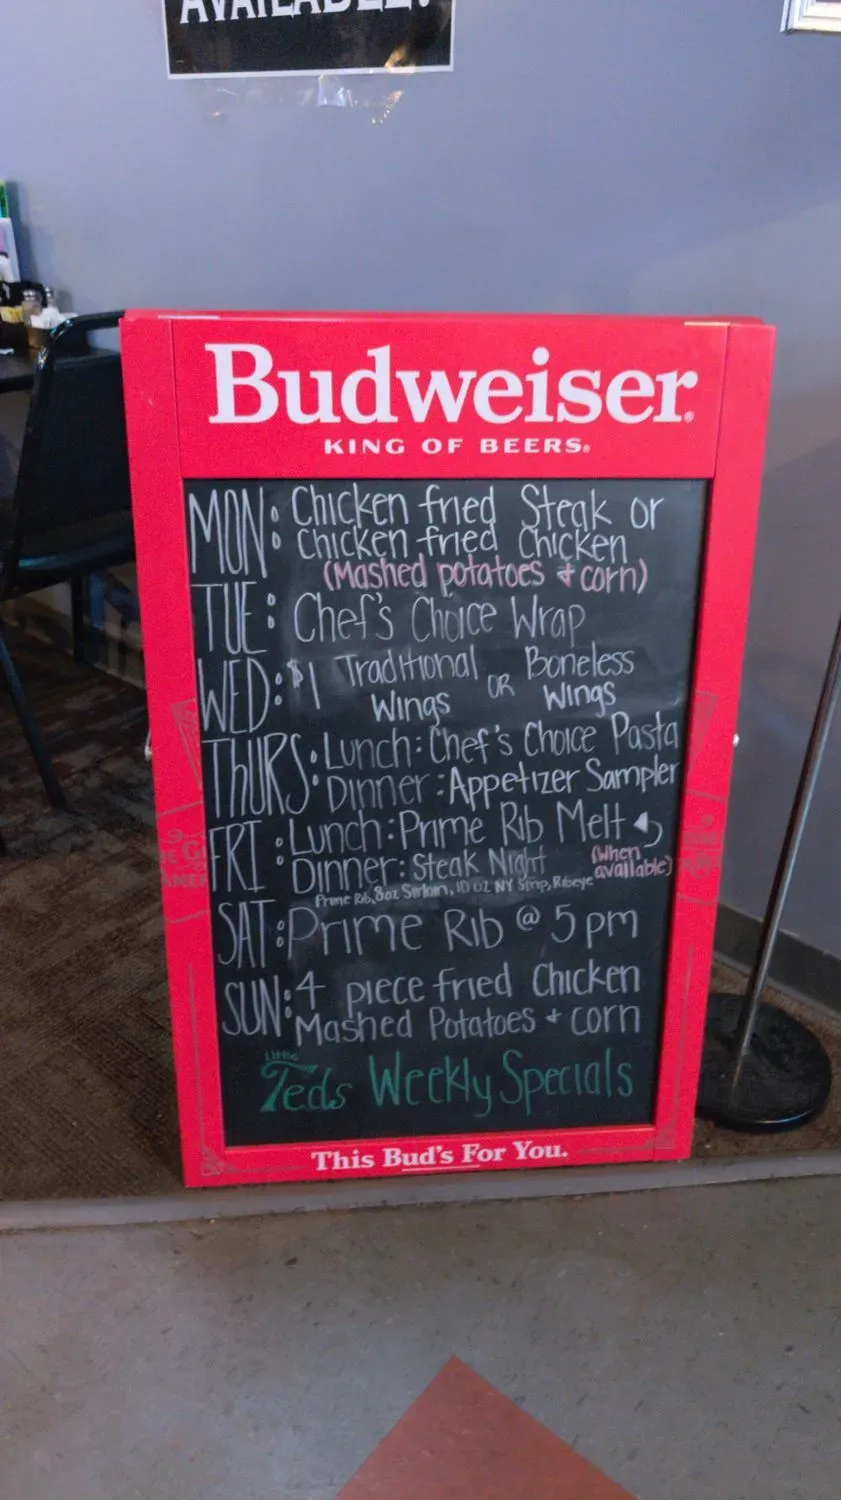 AVAILABLE!
Budweiser®
KING OF BEERS®
MON: Chicken fried Steak or
Chicken fried Chicken
(Mashed potatoes + corn)
TUE: Chef's Choice Wrap
WED: $1 Traditional Wings OR Boneless Wings
THURS: Lunch: Chef's Choice Pasta
Dinner: Appetizer Sampler
FRI: Lunch: Prime Rib Melt
(When available)
Dinner: Steak Night
Prime Rib, 8oz Sirloin, 10 oz NY Strip, Ribeye
SAT: Prime Rib @ 5 pm
SUN: 4 piece fried Chicken
Mashed Potatoes + corn
Little
Teds Weekly Specials
This Bud's For You.